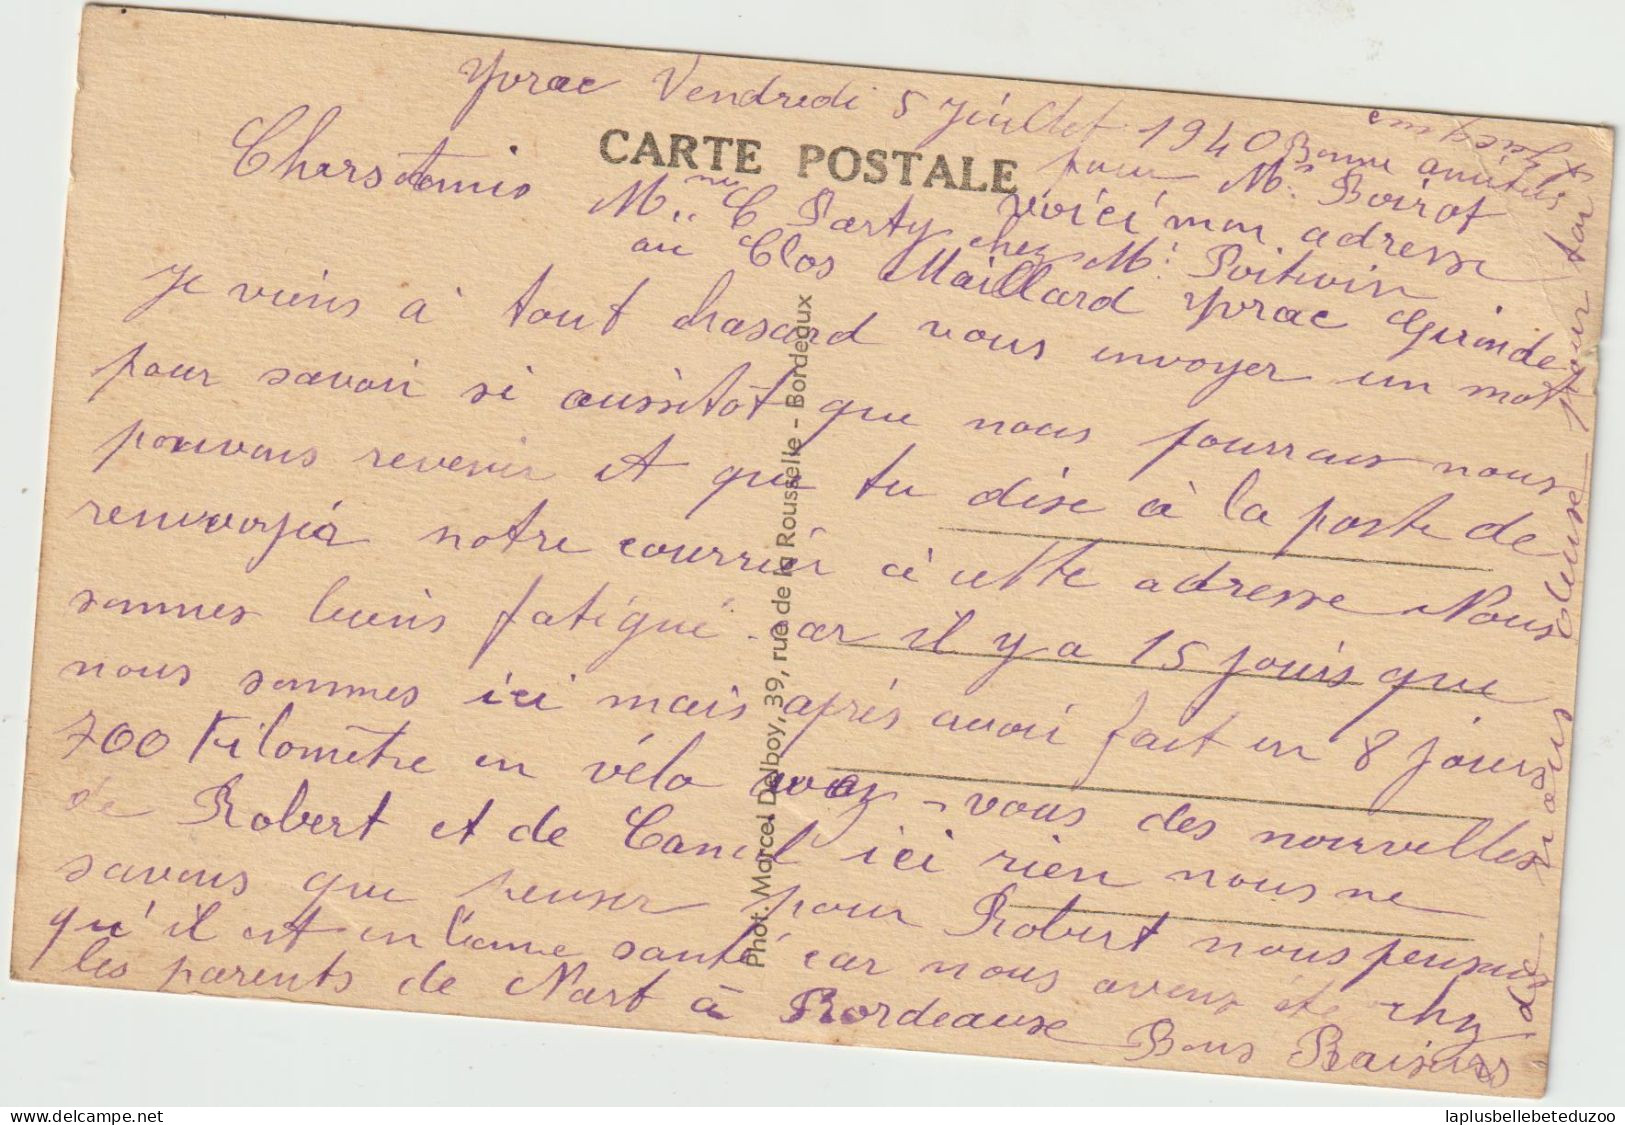 Yvrac Vendredi 5 Juillet 1940
CARTE POSTALE
Chers amis
Bonne amities
pour Mr Boirot
Voici mon adresse
Mme C Party chez Mr Poitevin
au Clos Maillard Yvrac Gironde
Je viens à tout hasard vous envoyer un mot
pour savoir si aussitôt que nous pourrons nous
pouvons revenir et que tu dise à la poste de
renvoyér notre courrier à cette adresse Nous
sommes biens fatigué car il y a 15 jours que
nous sommes ici mais après avoir fait en 8 jours
700 Kilomètre en vélo avez-vous des nouvelles
de Robert et de Camil ici rien nous ne
savons que penser pour Robert nous pensons
qu'il est en bonne santé car nous avons été chez
les parents de Nart à Bordeause Bons Baisers
de nous
pour ton
Phot. Marcel Delboy, 39, rue de la Rousselle - Bordeaux
laplusbellebeteduzoo
Delcampe.net